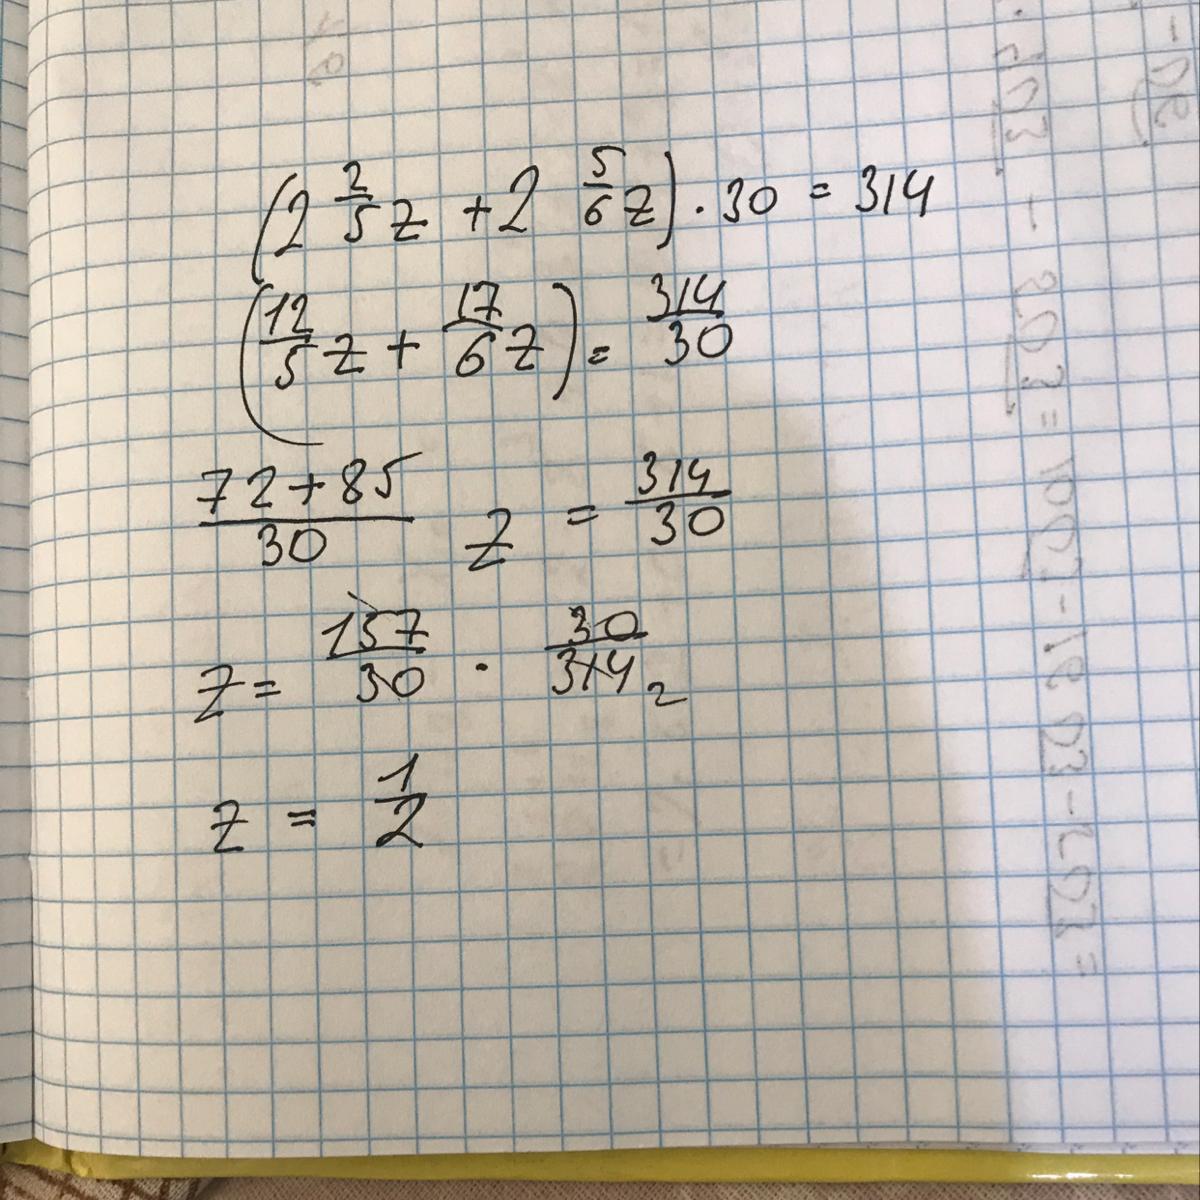 (2 2/5 z + 2 5/6 z) · 30 = 314
(12/5 z + 17/6 z) = 314/30
72+85/30 z = 314/30
z = 157/30 · 30/314 2
z = 1/2